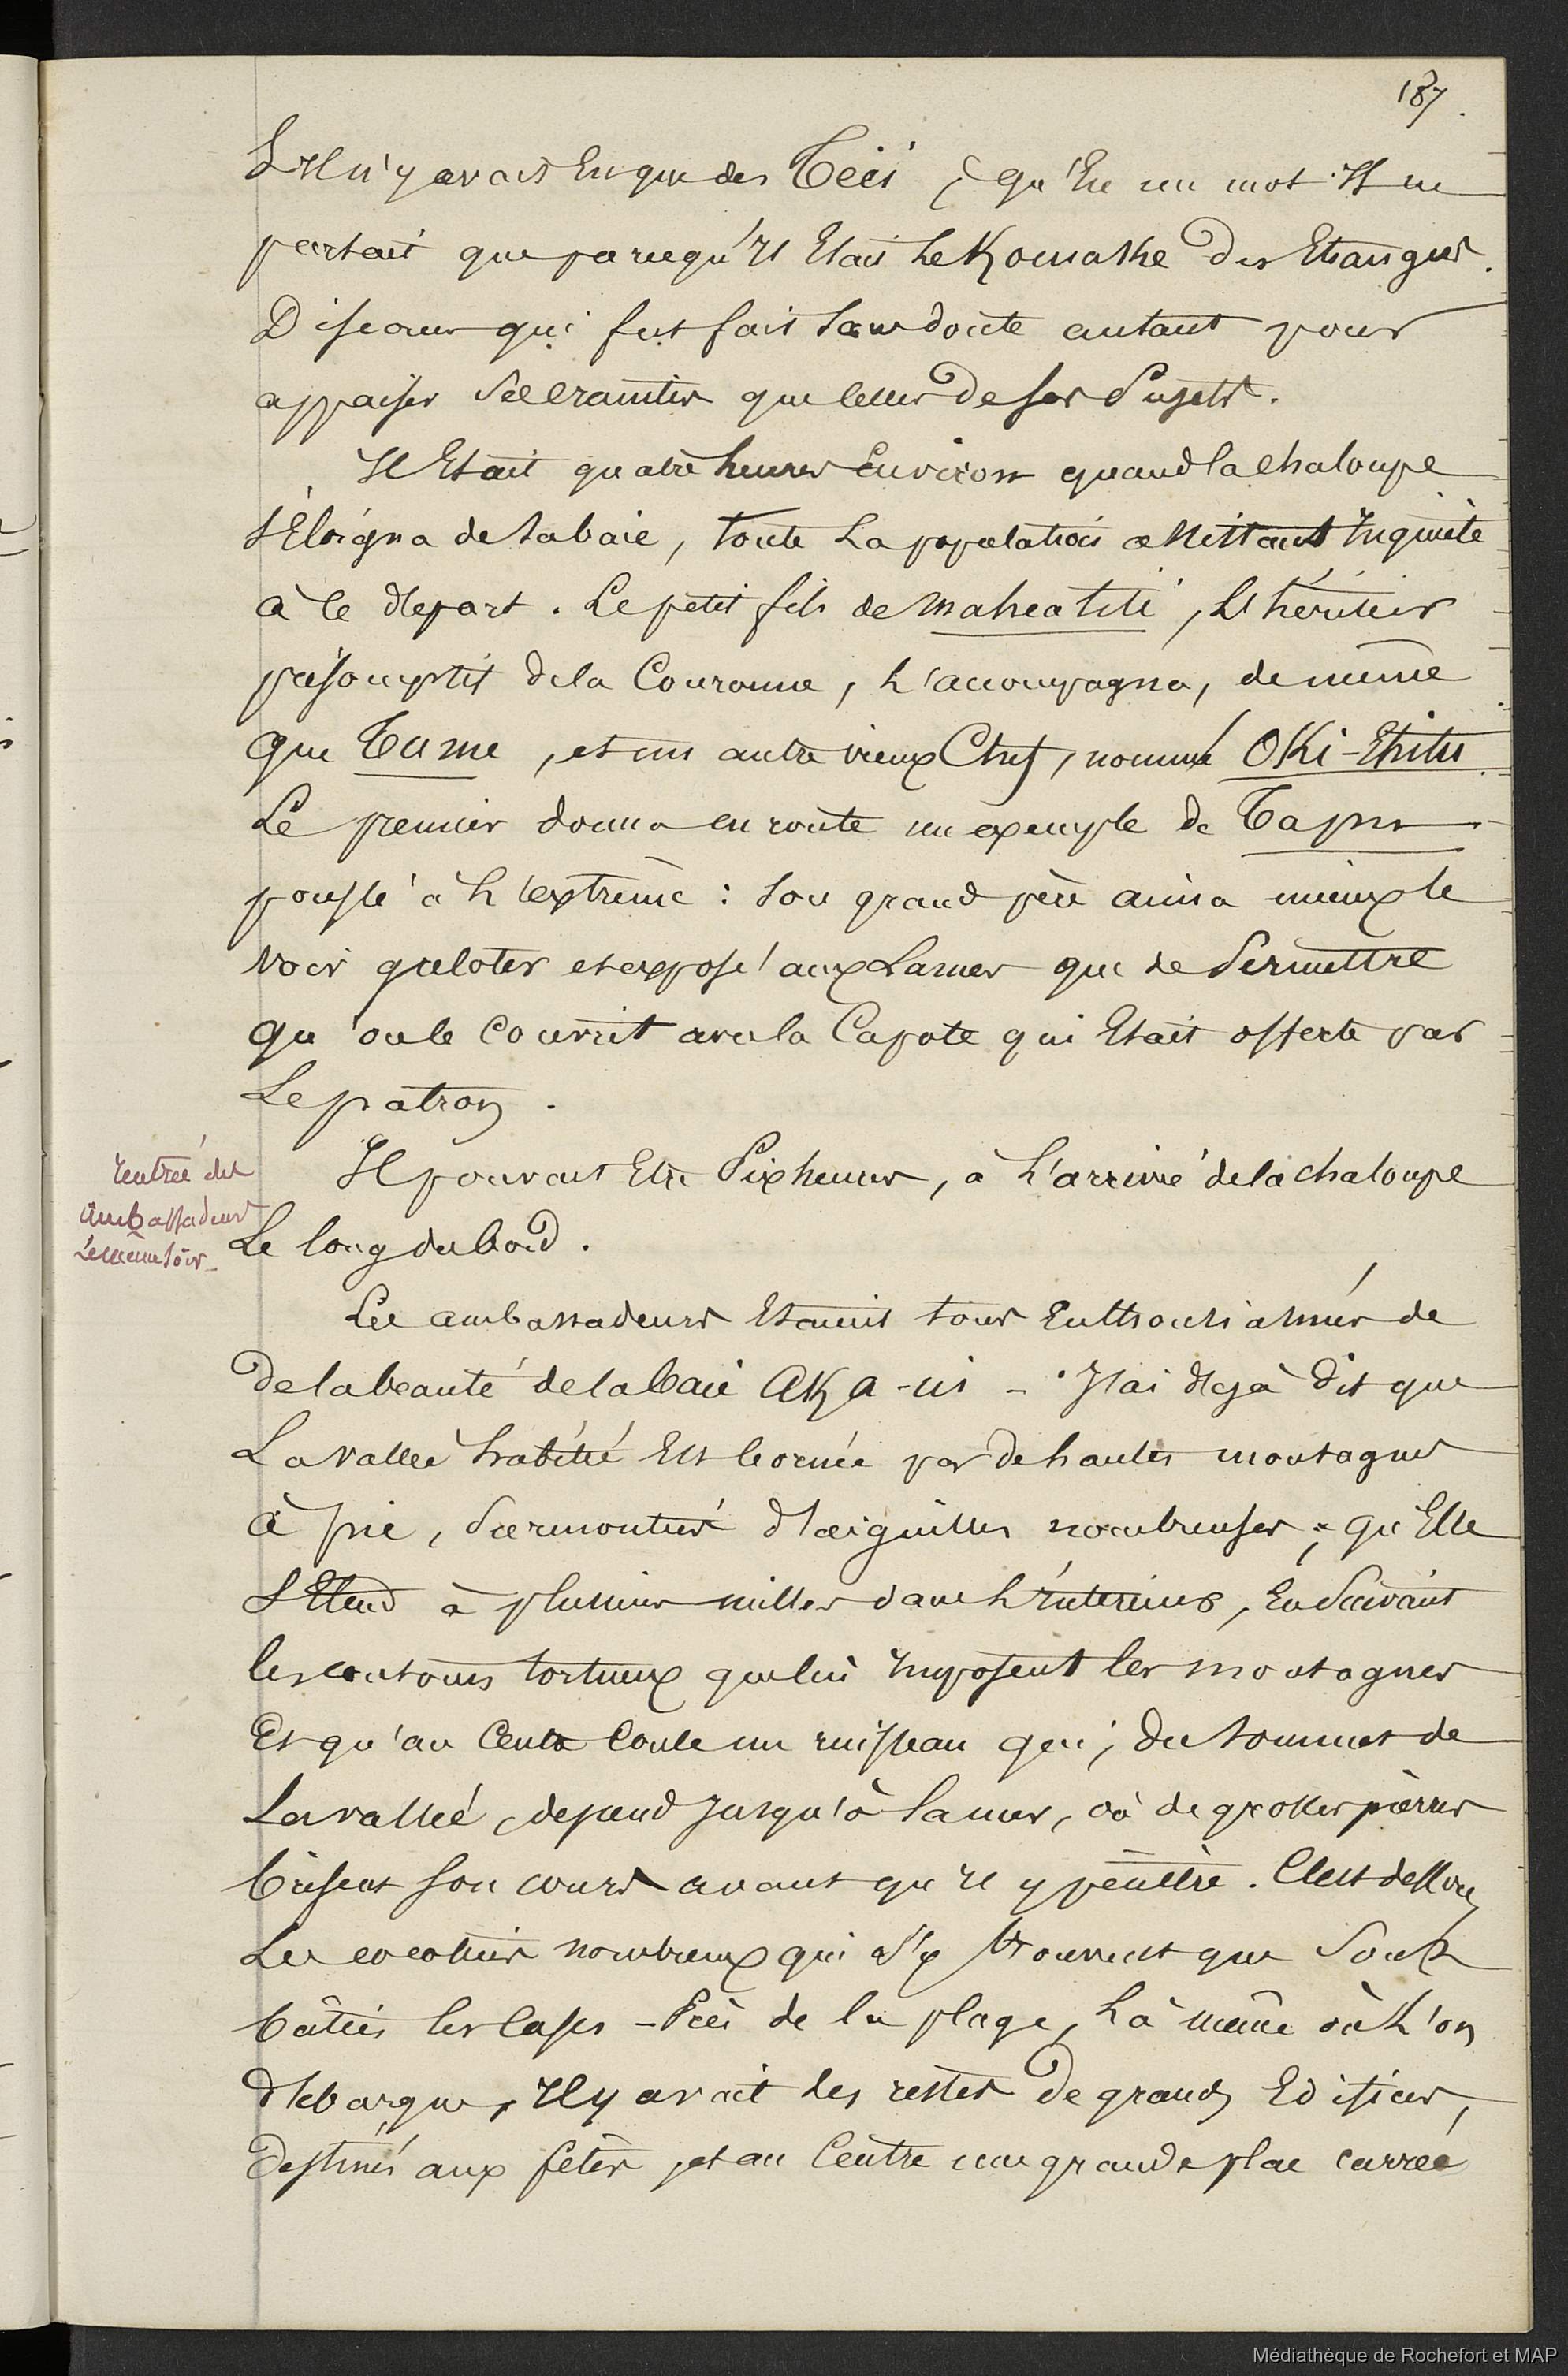 187.
S'Il n'y avait Eu que des Téïi ; qu'En un mot Il ne
partait que parcequ'Il Etait le Komathe des Etrangers.
Discours qui fut fait sans doute autant pour
appaiser Ses craintes que celles de ses Sujets.
Il Etait quatre heures Environ quand la chaloupe
s'Eloigna de la baie, toute la population assistant Inquiète
à ce départ. Le petit fils de Maheatité, l'héritier
présomptif de la Couronne, l'accompagna, de même
que Tume, et un autre vieux Chef, nommé OKi-Ehitu
Le premier donna en route un exemple de Tapu
poussé à l'extrême : son grand père aima mieux le
voir greloter et exposé aux Lames que de Permettre
qu'on le couvrit avec la Capote qui Etait offerte par
Le patron.
Rentrée des
Ambassadeurs
Le même soir_
Il pouvait Etre Six heures, à l'arrivé de la chaloupe
Le long du bord.
Les ambassadeurs Etaient tous Enthousiasmés de
de la beauté de la baie AKA-ui - J'ai déjà dit que
La vallée habitée Est bornée par de hautes montagnes
à pic, Surmontés d'aiguilles nombreuses ; qu'Elle
S'Etend à plusieurs milles dans l'Interieur, En Suivant
les contours tortueux que lui Imposent les montagnes
Et qu'au Centre Coule un ruisseau qui, du sommet de
La vallée, descend Jusqu'à la mer, où de grosses pierres
brisent son cours avant qu'Il y pénètre. C'est dessous
Les cocotiers nombreux qui s'y trouvent que Sont
bâties les Cases - Près de la plage, Là même où l'on
débarque, Il y avait les restes de grands Edifices,
destinés aux fêtes, et au Centre une grande place carrée